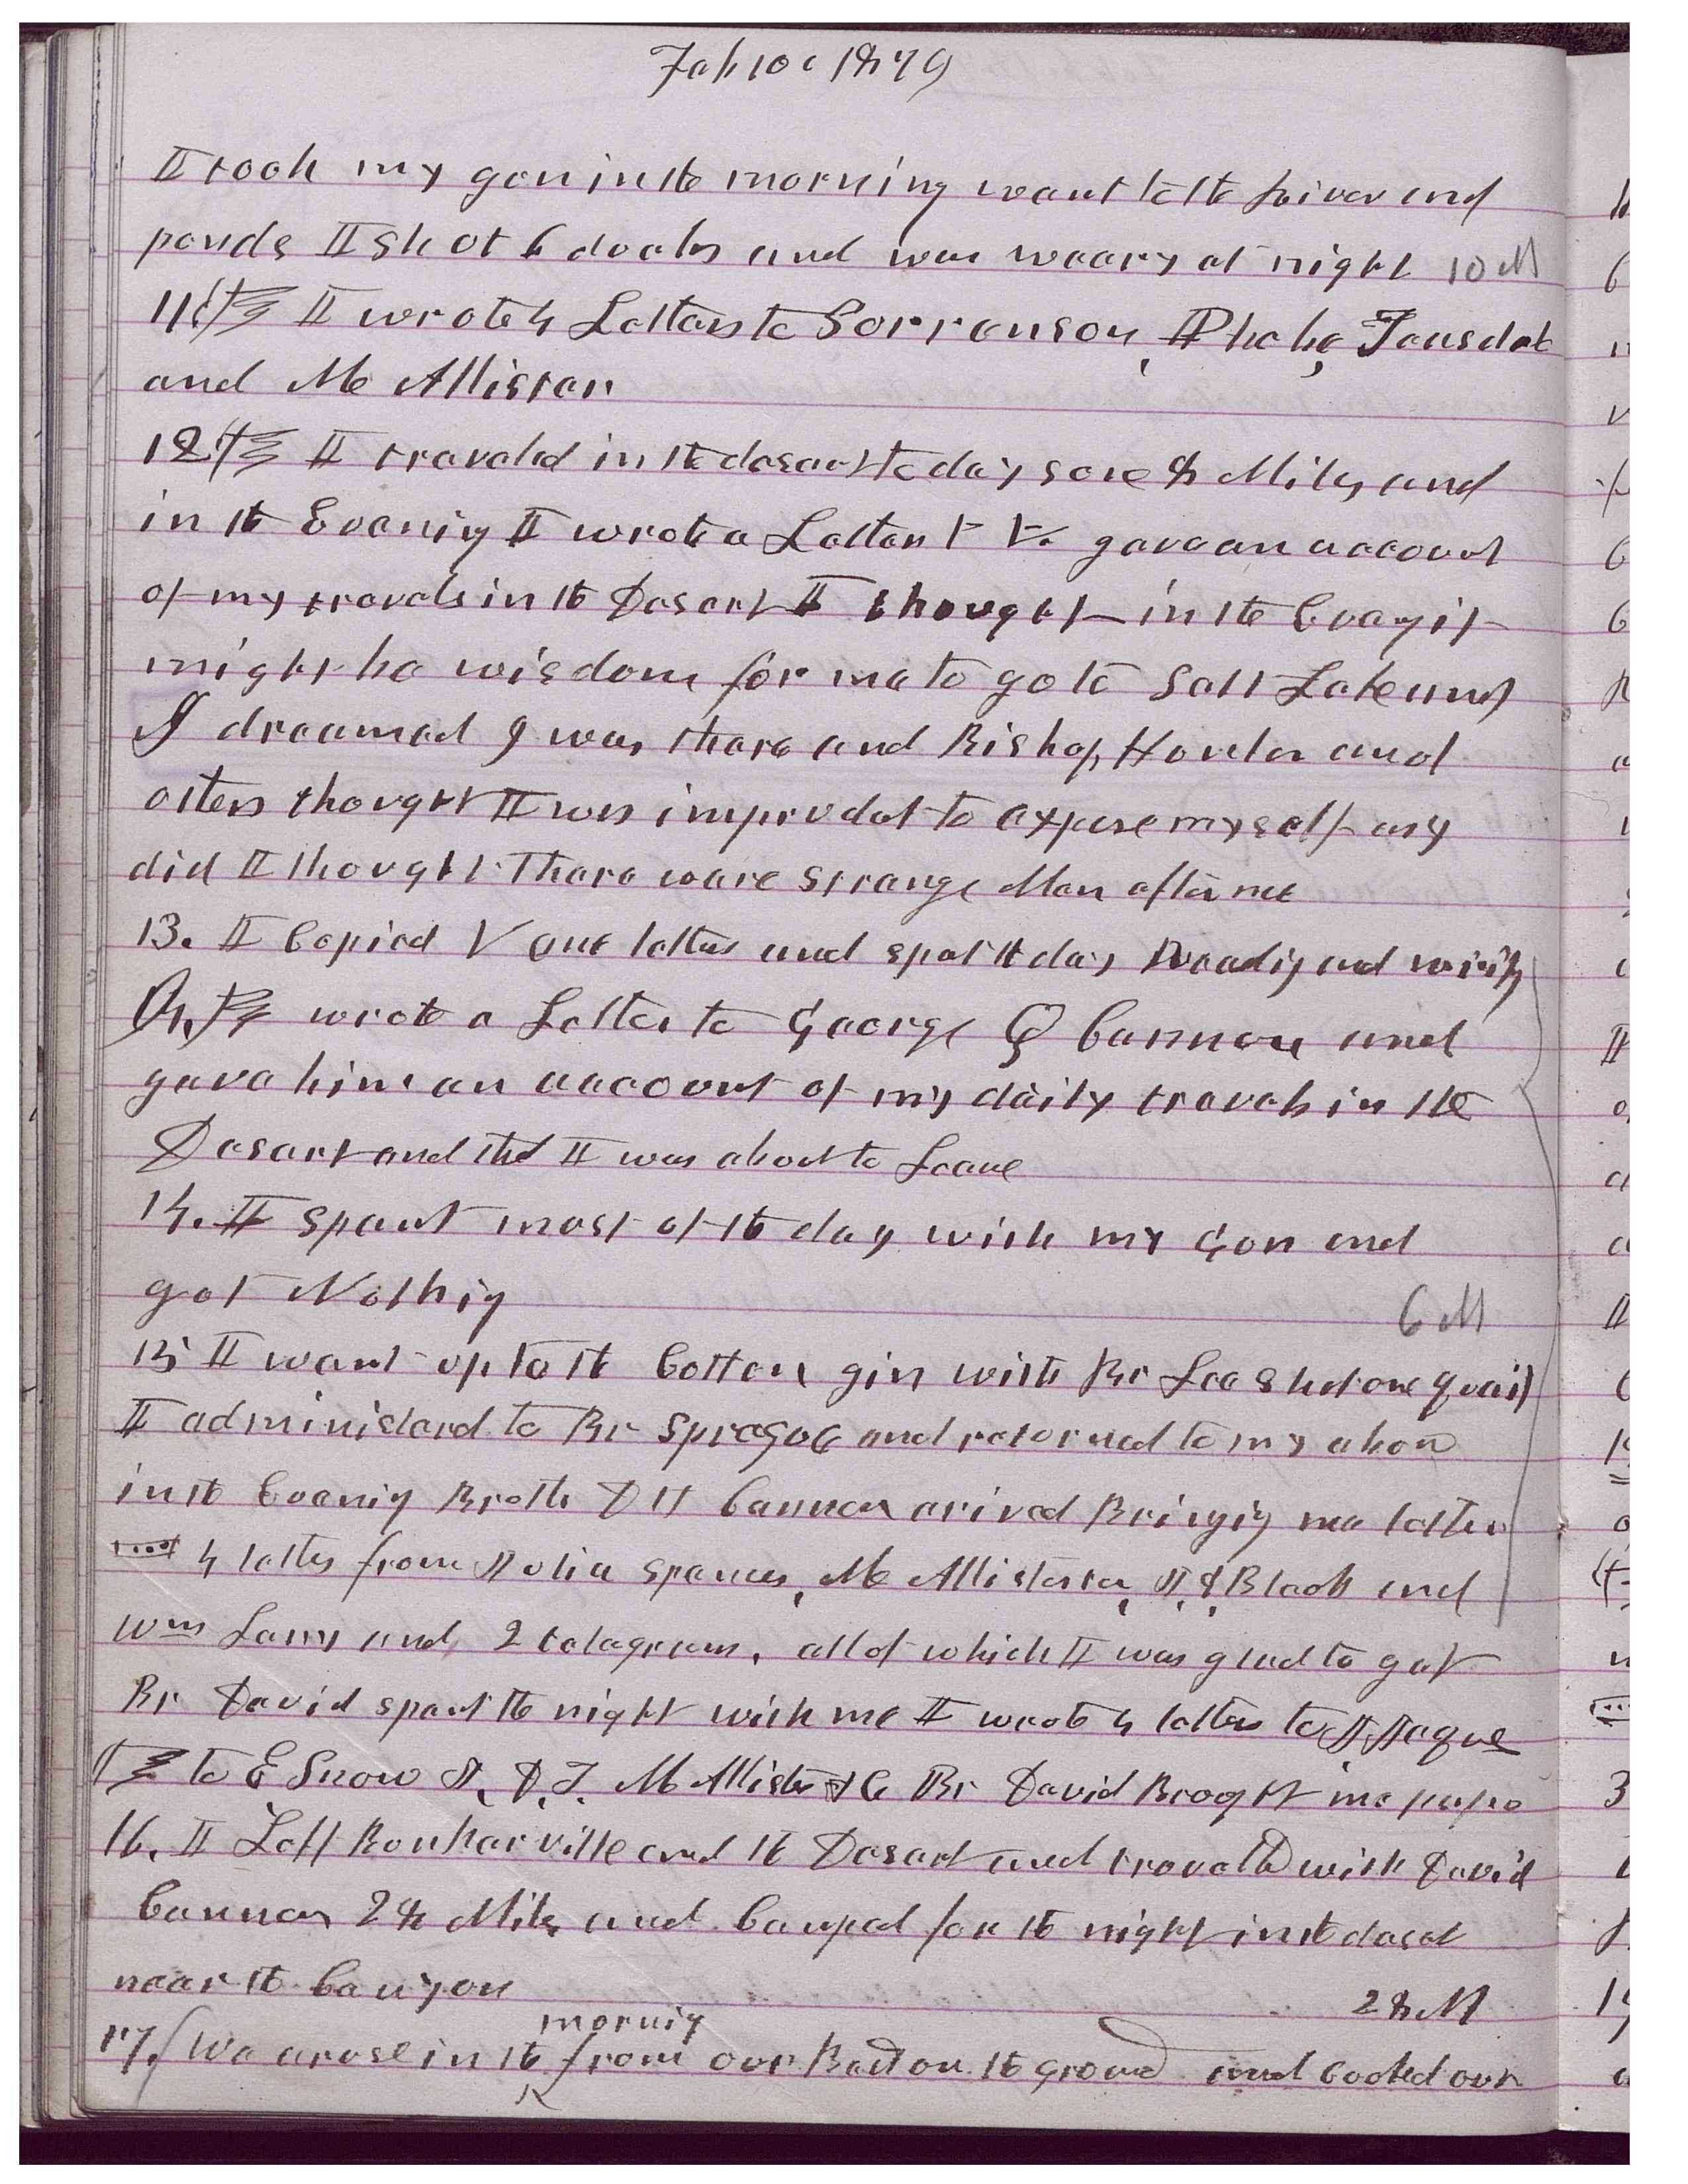 Feb 10, 1879
I took my gun in the morning went to the River and
ponds I shot 6 ducks and was weary at night 10 M
11 I wrote 4 Letters to Sorrenson, Phebe, Teusdale
and Mc Allister
12 I traveled in the desert to day some 8 Miles and
in the Evening I wrote a Letter gave an account
of my travels in the Desert I thought in the Evenig it
might be wisdom for me to go to Salt Lake and
I dreamed I was there and Bishop Hunter and
others thought I was imprudet to expose myself as I
did I thought There ware strange Men after me
13. I Copied V one letters and spet the day Reading and writig
wrote a Letter to George Q Cannon and
gave him an account of my daily travels in the
Desert and that I was about to Leave
14. I spent most of the day with my Gun and
got Nothig 6 M
15 I went up to the Cotton gin with Br Lee shot one quail
I administerd to Br Sprague and returned to my abode
in the Evenig Brothe D H Cannon arived Bringig me letters
4 letters from Julia Spencer, Mc Allister, J. & Black and
Wm Lany and 2 telagrams, all of which I was glad to get
Br David spent the night with me I wrote 4 letters to J Jaques
to E Snow J, D, T. McAllister & C Br David Brought me pape
16. I Left Bunkarville and the Desert and traveled with David
Cannon 28 Miles and Camped for the night in the desert
near the Canyon 28 M
17. We arose in the morning from our Bed on the ground and cooked our